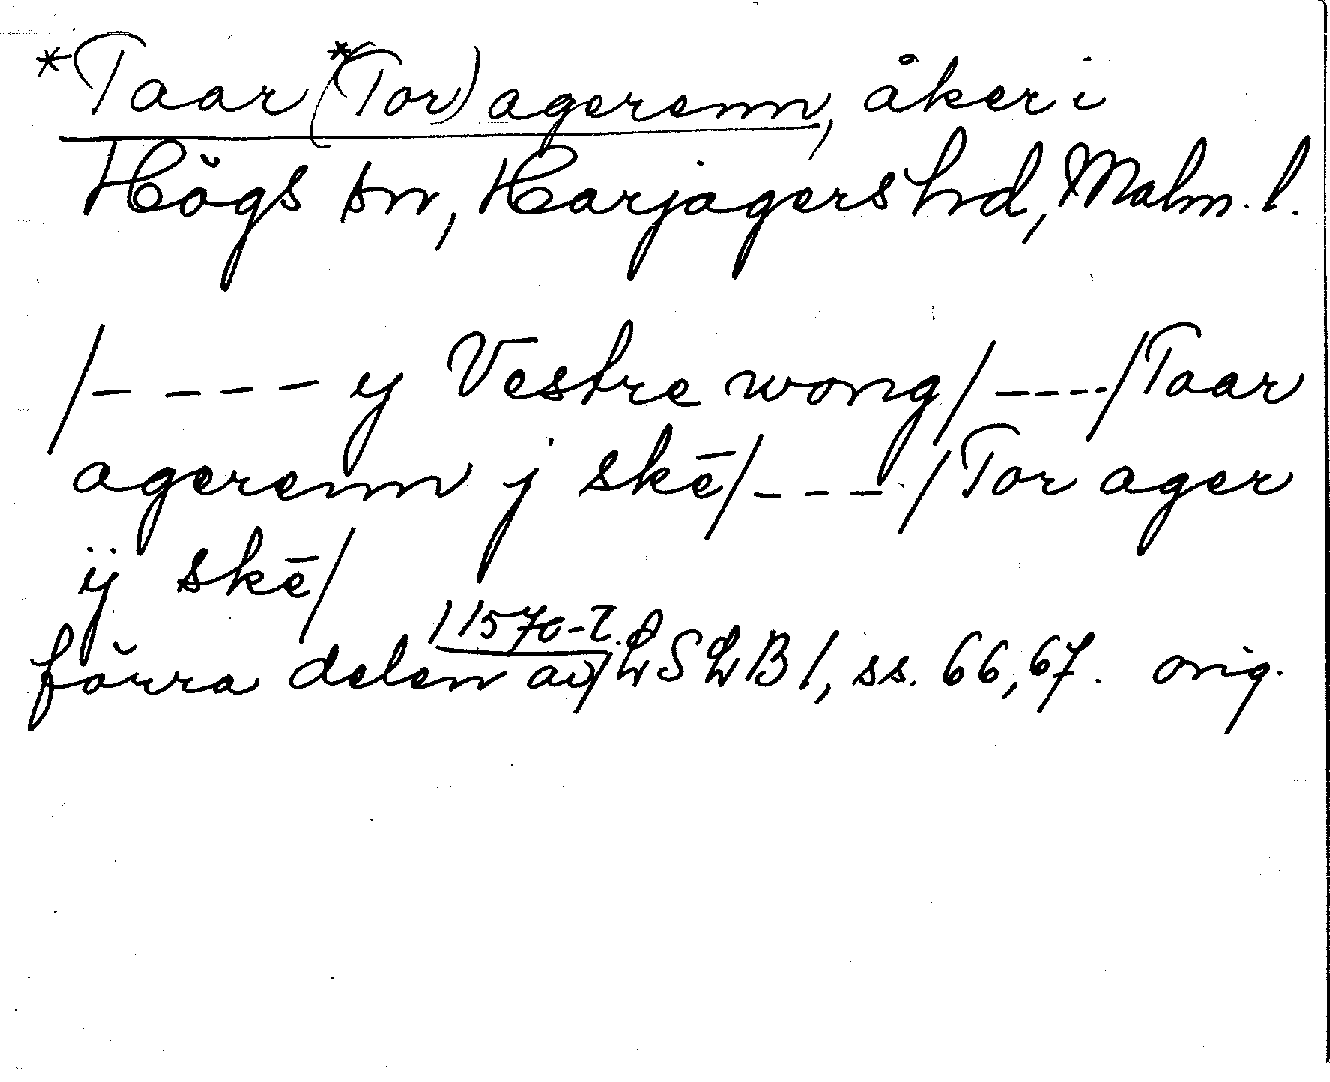 *Taar (*Tor) agerenn, åker i
Högs sn, Harjagers hd, Malm. l.
/- - - - y Vestre wong/- - - -/Taar
agerenn j skē/- - - -/Tor ager
ÿ skē/
förra delen av /1570-t./ LSLB 1, ss. 66, 67. orig.